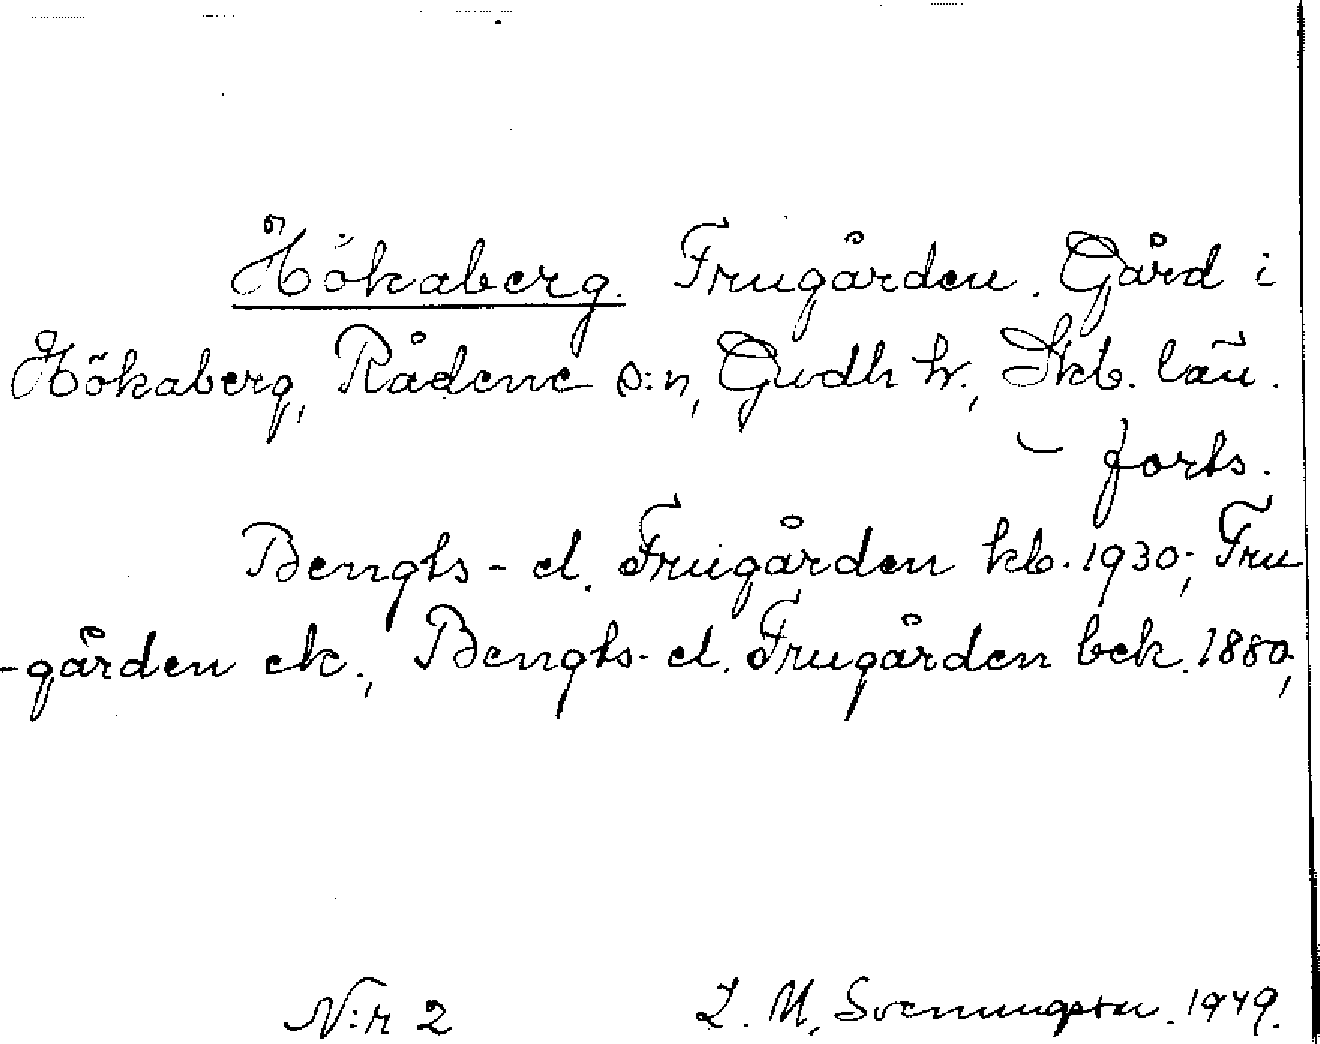 Hökaberg. Frugården. Gård i
Hökaberg, Rådene s:n, Gudh hr., Skb. län.
– forts.
Bengts- el. Frugården kb. 1930; Fru
-gården ek., Bengts- el. Frugården bek. 1880,
N:r 2 L. M. Svenungsson. 1949.